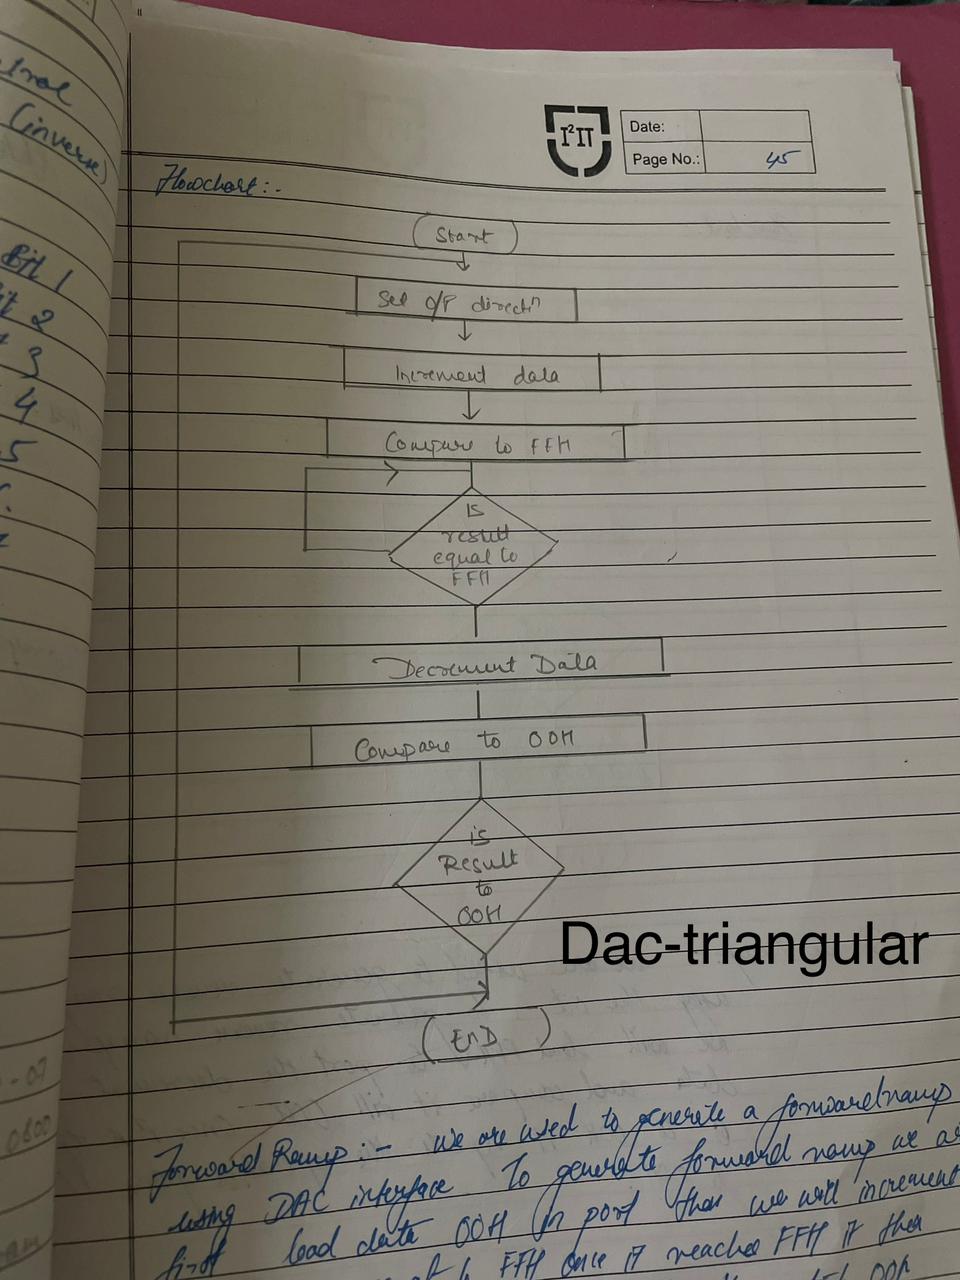 tral
(inverse)
Bit 1
it 2
3
4
5
I²IT
Date:
Page No.: 45
Flowchart :-
Start
Set O/P directⁿ
Increment data
Compare to FFH
Is
result
equal to
FFH
Decrement Data
Compare to 00H
is
Result
to
00H
Dac-triangular
END
Forward Ramp :- we are used to generate a forward ramp
using DAC interface To generate forward ramp we
first load data 00H in port then we will increment
FFH once it reaches FFH it then
00H